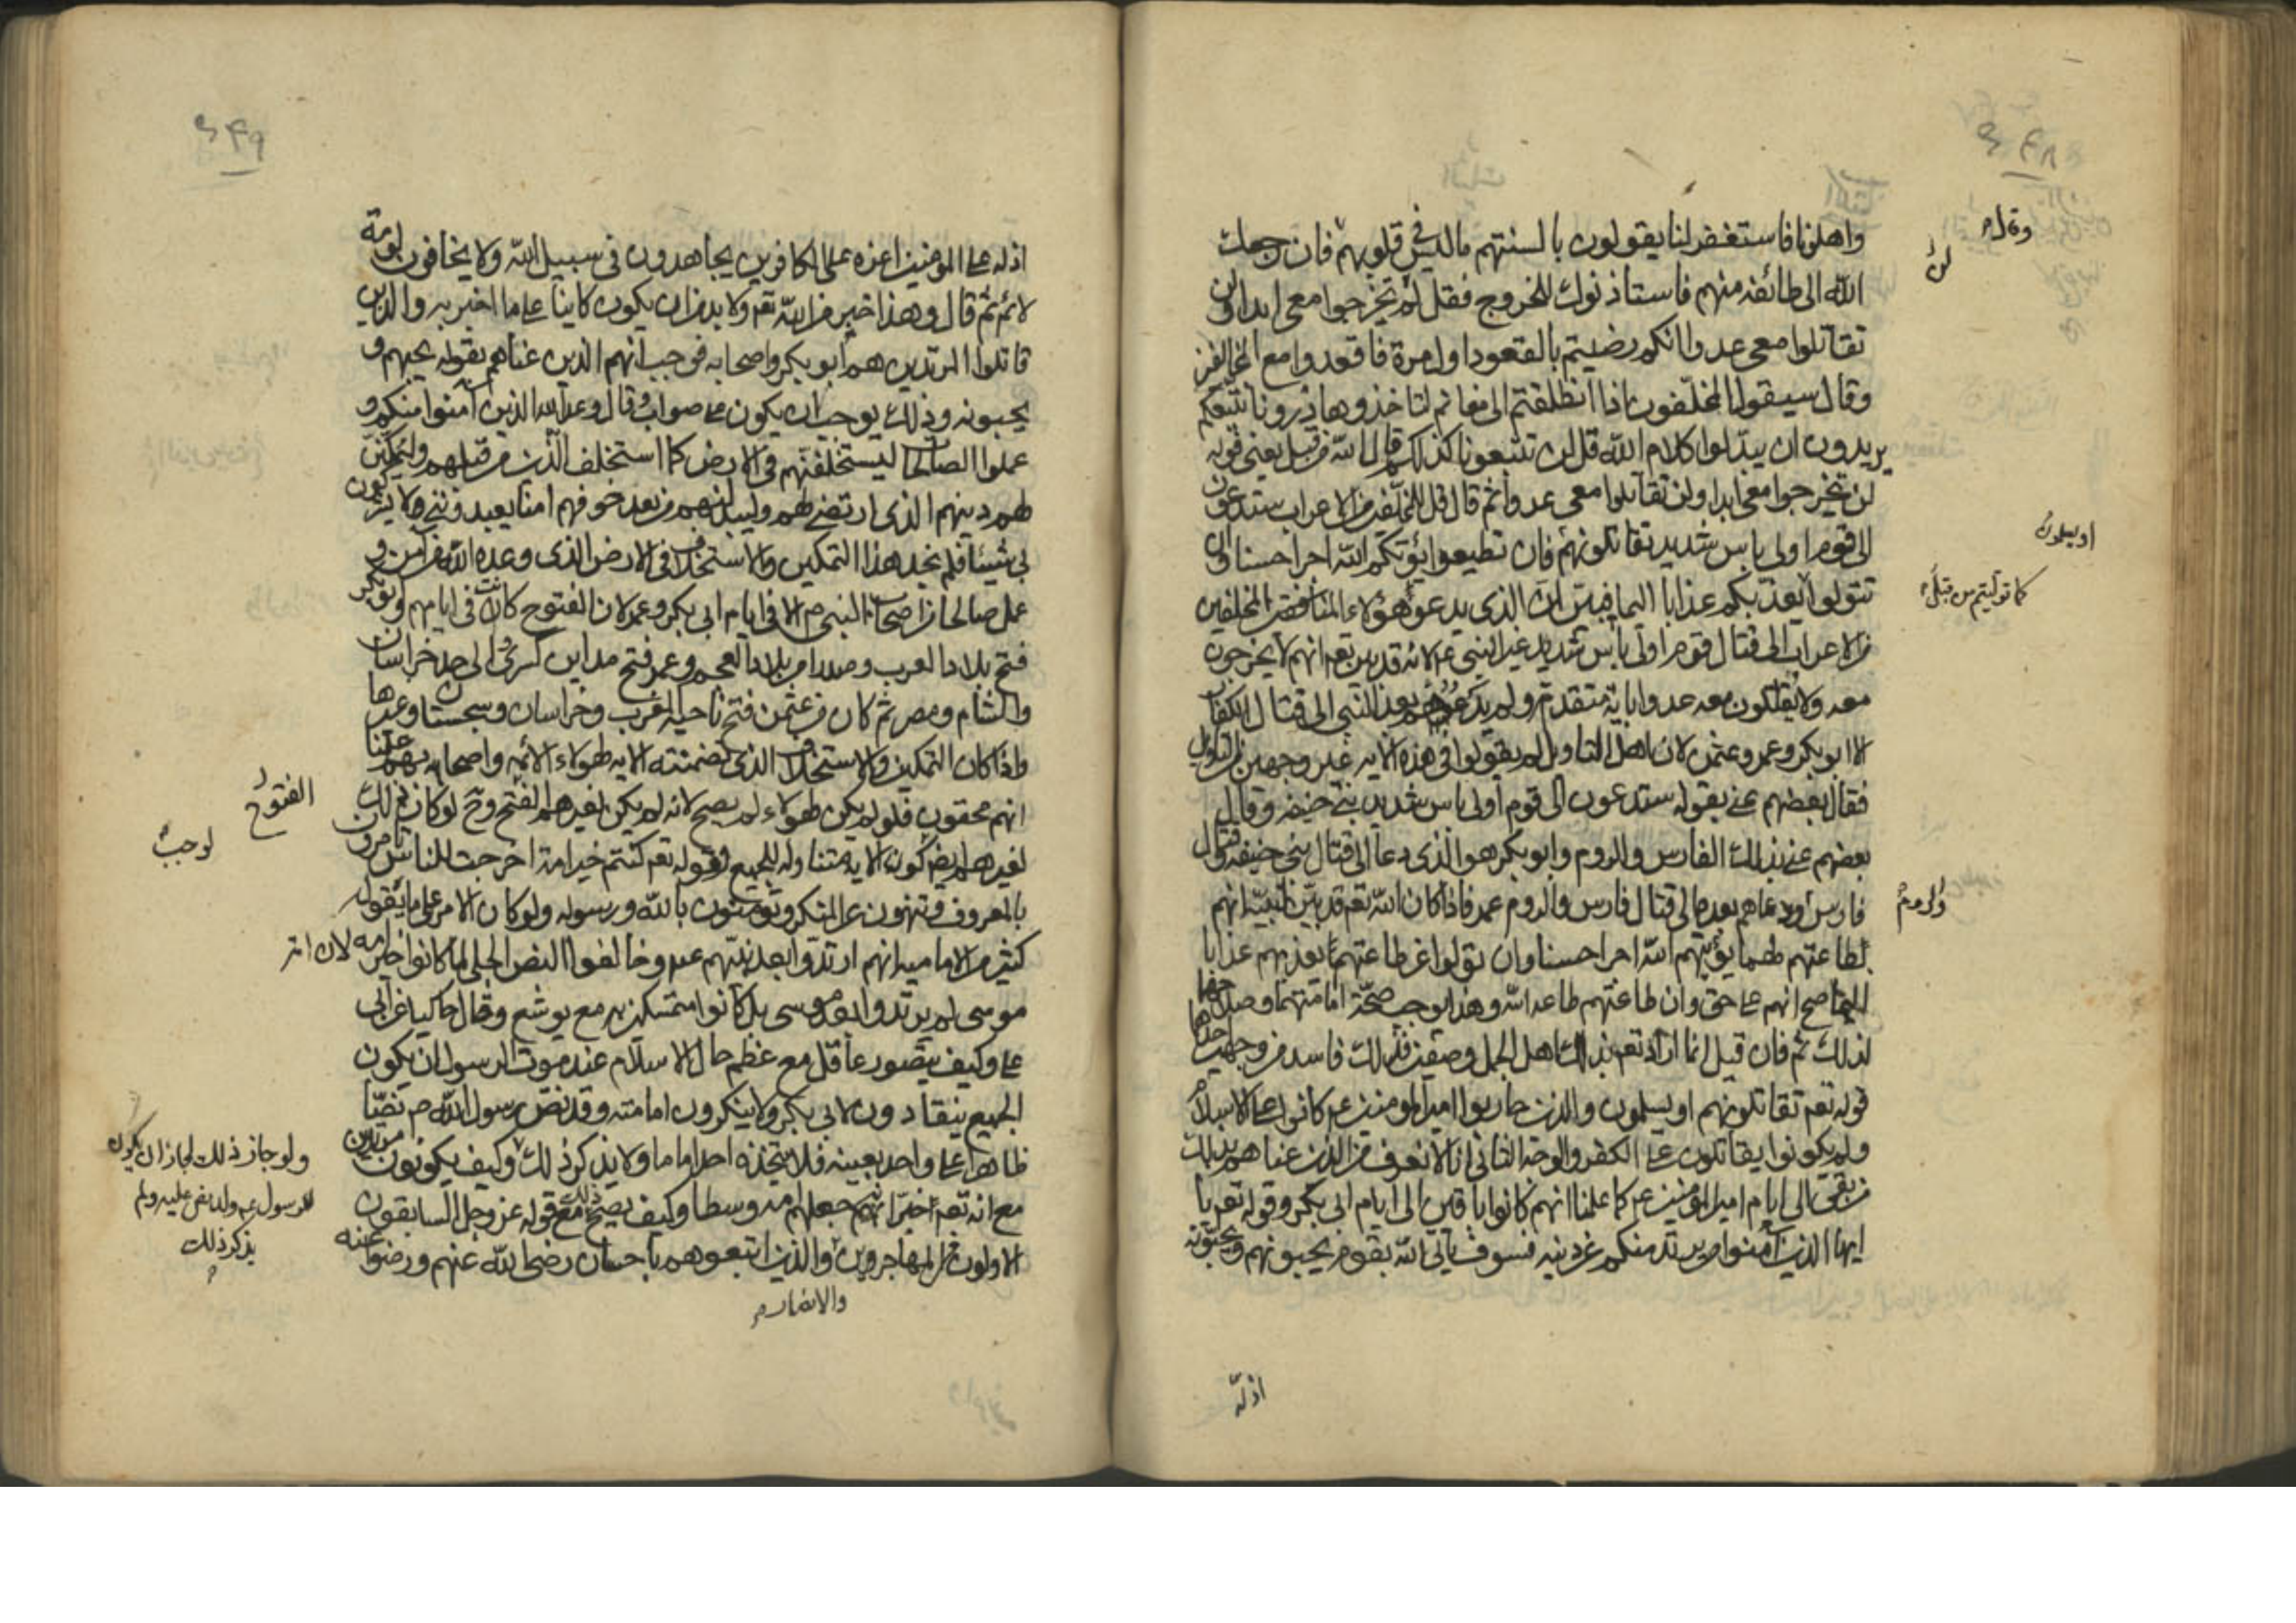 ٤٤٨
واهلونا فاستغفر لنا يقولون بالسنتهم ما ليس في قلوبهم فان رجعك
وقال
الله الى طائفة منهم فاستاذنوك للخروج فقل لن تخرجوا معي ابدا ولن
لن
تقاتلوا معي عدوا انكم رضيتم بالقعود اول مرة فاقعدوا مع الخالفين
وقال سيقول المخلفون اذا انطلقتم الى مغانم لتاخذوها ذرونا نتبعكم
يريدون ان يبدلوا كلام الله قل لن تتبعونا كذلكم قال الله من قبل يعني قوله
لن تخرجوا معي ابدا ولن تقاتلوا معي عدوا ثم قال قل للمخلفين من الاعراب ستدعون
الى قوم اولي باس شديد تقاتلونهم فان تطيعوا يؤتكم الله اجرا حسنا وان
او يسلمون
تتولوا يعذبكم عذابا اليما فبين ان الذي يدعو هؤلاء المنافقين المخلفين
كما توليتم من قبل
من الاعراب الى قتال قوم اولي باس شديد غير النبي عم لانه قد بين تعم انهم لا يخرجون
معه ولا يقاتلون معه عدوا باية متقدمة ولم يدعوهم بعد النبي الى قتال الكفار
الا ابو بكر وعمر وعثمن لان اهل التاويل لم يقولوا في هذه الاية غير وجهين من التاويل
فقال بعضهم عنى بقوله ستدعون الى قوم اولي باس شديد بني حنيفة وقال
بعضهم عنى بذلك الفارس والروم وابو بكر هو الذي دعا الى قتال بني حنيفة وقتال
فارس ودعاهم بعده الى قتال فارس والروم عمر فاذا كان الله تعم قد بين انهم
والروم
بطاعتهم لهما يؤتيهم الله اجرا حسنا وان تولوا عن طاعتهما يعذبهم عذابا
اليما صح انهم على حق وان طاعتهم طاعة الله وهذا يوجب صحة امامتهما
لذلك ثم فان قيل انما اراد تعم بذلك اهل الجمل وصفين فذلك فاسد من وجهين احدهما
قوله تعم تقاتلونهم او يسلمون والذين حاربوا امير المومنين عم كانوا على الاسلام
ولم يكونوا يقاتلون على الكفر والوجه الثاني انا لا نعرف من الذين عناهم بذلك
من بقي الى ايام امير المؤمنين عم كما علمنا انهم كانوا باقين الى ايام ابي بكر وقوله تعم يا
ايها الذين آمنوا من يرتد منكم عن دينه فسوف ياتي الله بقوم يحبهم ويحبونه
اذلة
٤٤٩
اذلة على المؤمنين اعزة على الكافرين يجاهدون في سبيل الله ولا يخافون لومة
لائم ثم قال وهذا خبر من الله تعم ولا بد من ان يكون كاينا على ما اخبر به والذين
قاتلوا المرتدين هم ابو بكر واصحابه فوجب انهم الذين عناهم بقوله يحبهم و
يحبونه وذلك يوجب ان يكون على صواب وقال وعد الله الذين آمنوا منكم و
عملوا الصالحات ليستخلفنهم في الارض كما استخلف الذين من قبلهم وليمكنن
لهم دينهم الذي ارتضى لهم وليبدلنهم من بعد خوفهم امنا يعبدونني ولا يشركون
بي شيئا فلم نجد هذا التمكين والاستخلاف في الارض الذي وعده الله من آمن و
عمل صالحا من اصحاب النبي ص الا في ايام ابي بكر وعمر لان الفتوح كانت في ايامهم ابو بكر
فتح بلاد العرب وصدرا من بلاد العجم وعمر فتح مداين كسرى الى حد خراسان
والشام ومصر ثم كان من عثمن فتح ناحية المغرب وخراسان وسجستان وغيرها
واذا كان التمكين والاستخلاف الذي تضمنته الاية لهؤلاء الائمه واصحابهم علمنا
انهم محقون فلو لم يكن لهؤلاء لم يصح لانه لم يكن لغيرهم الفتح وح لو كان ذلك
الفتوح
لوجب
لغيرهم كون الاية متناولة للجميع وقوله تعم كنتم خير امة اخرجت للناس تامرون
بالمعروف وتنهون عن المنكر وتومنون بالله ورسوله ولو كان الامر على ما يقوله
كثير من الامامية انهم ارتدوا بعد نبيهم عم وخالفوا النص الجلي لما كانوا خير امه لان امة
موسى لم يرتدوا بعد موسى بل كانوا متمسكين به مع يوشع وقال حاكيا عن ابي
على وكيف يتصور عاقل مع عظم حال الاسلام عند موت الرسول ان يكون
الجميع ينقادون لابي بكر ولا ينكرون امامته وقد نص رسول الله ص نصا
ظاهرا على واحد بعينه فلا يتخذه احد اماما ولا يذكر ذلك وكيف يكونون مرتدين
ولو جاز ذلك لجاز ان يكون
للرسول عم ولد نص عليه ولم
يذكر ذلك
مع انه تعم اخبر انه جعلهم امة وسطا وكيف يصح ذلك مع قوله عز وجل السابقون
الاولون من المهاجرين والذين اتبعوهم باحسان رضي الله عنهم ورضوا عنه
والانصار